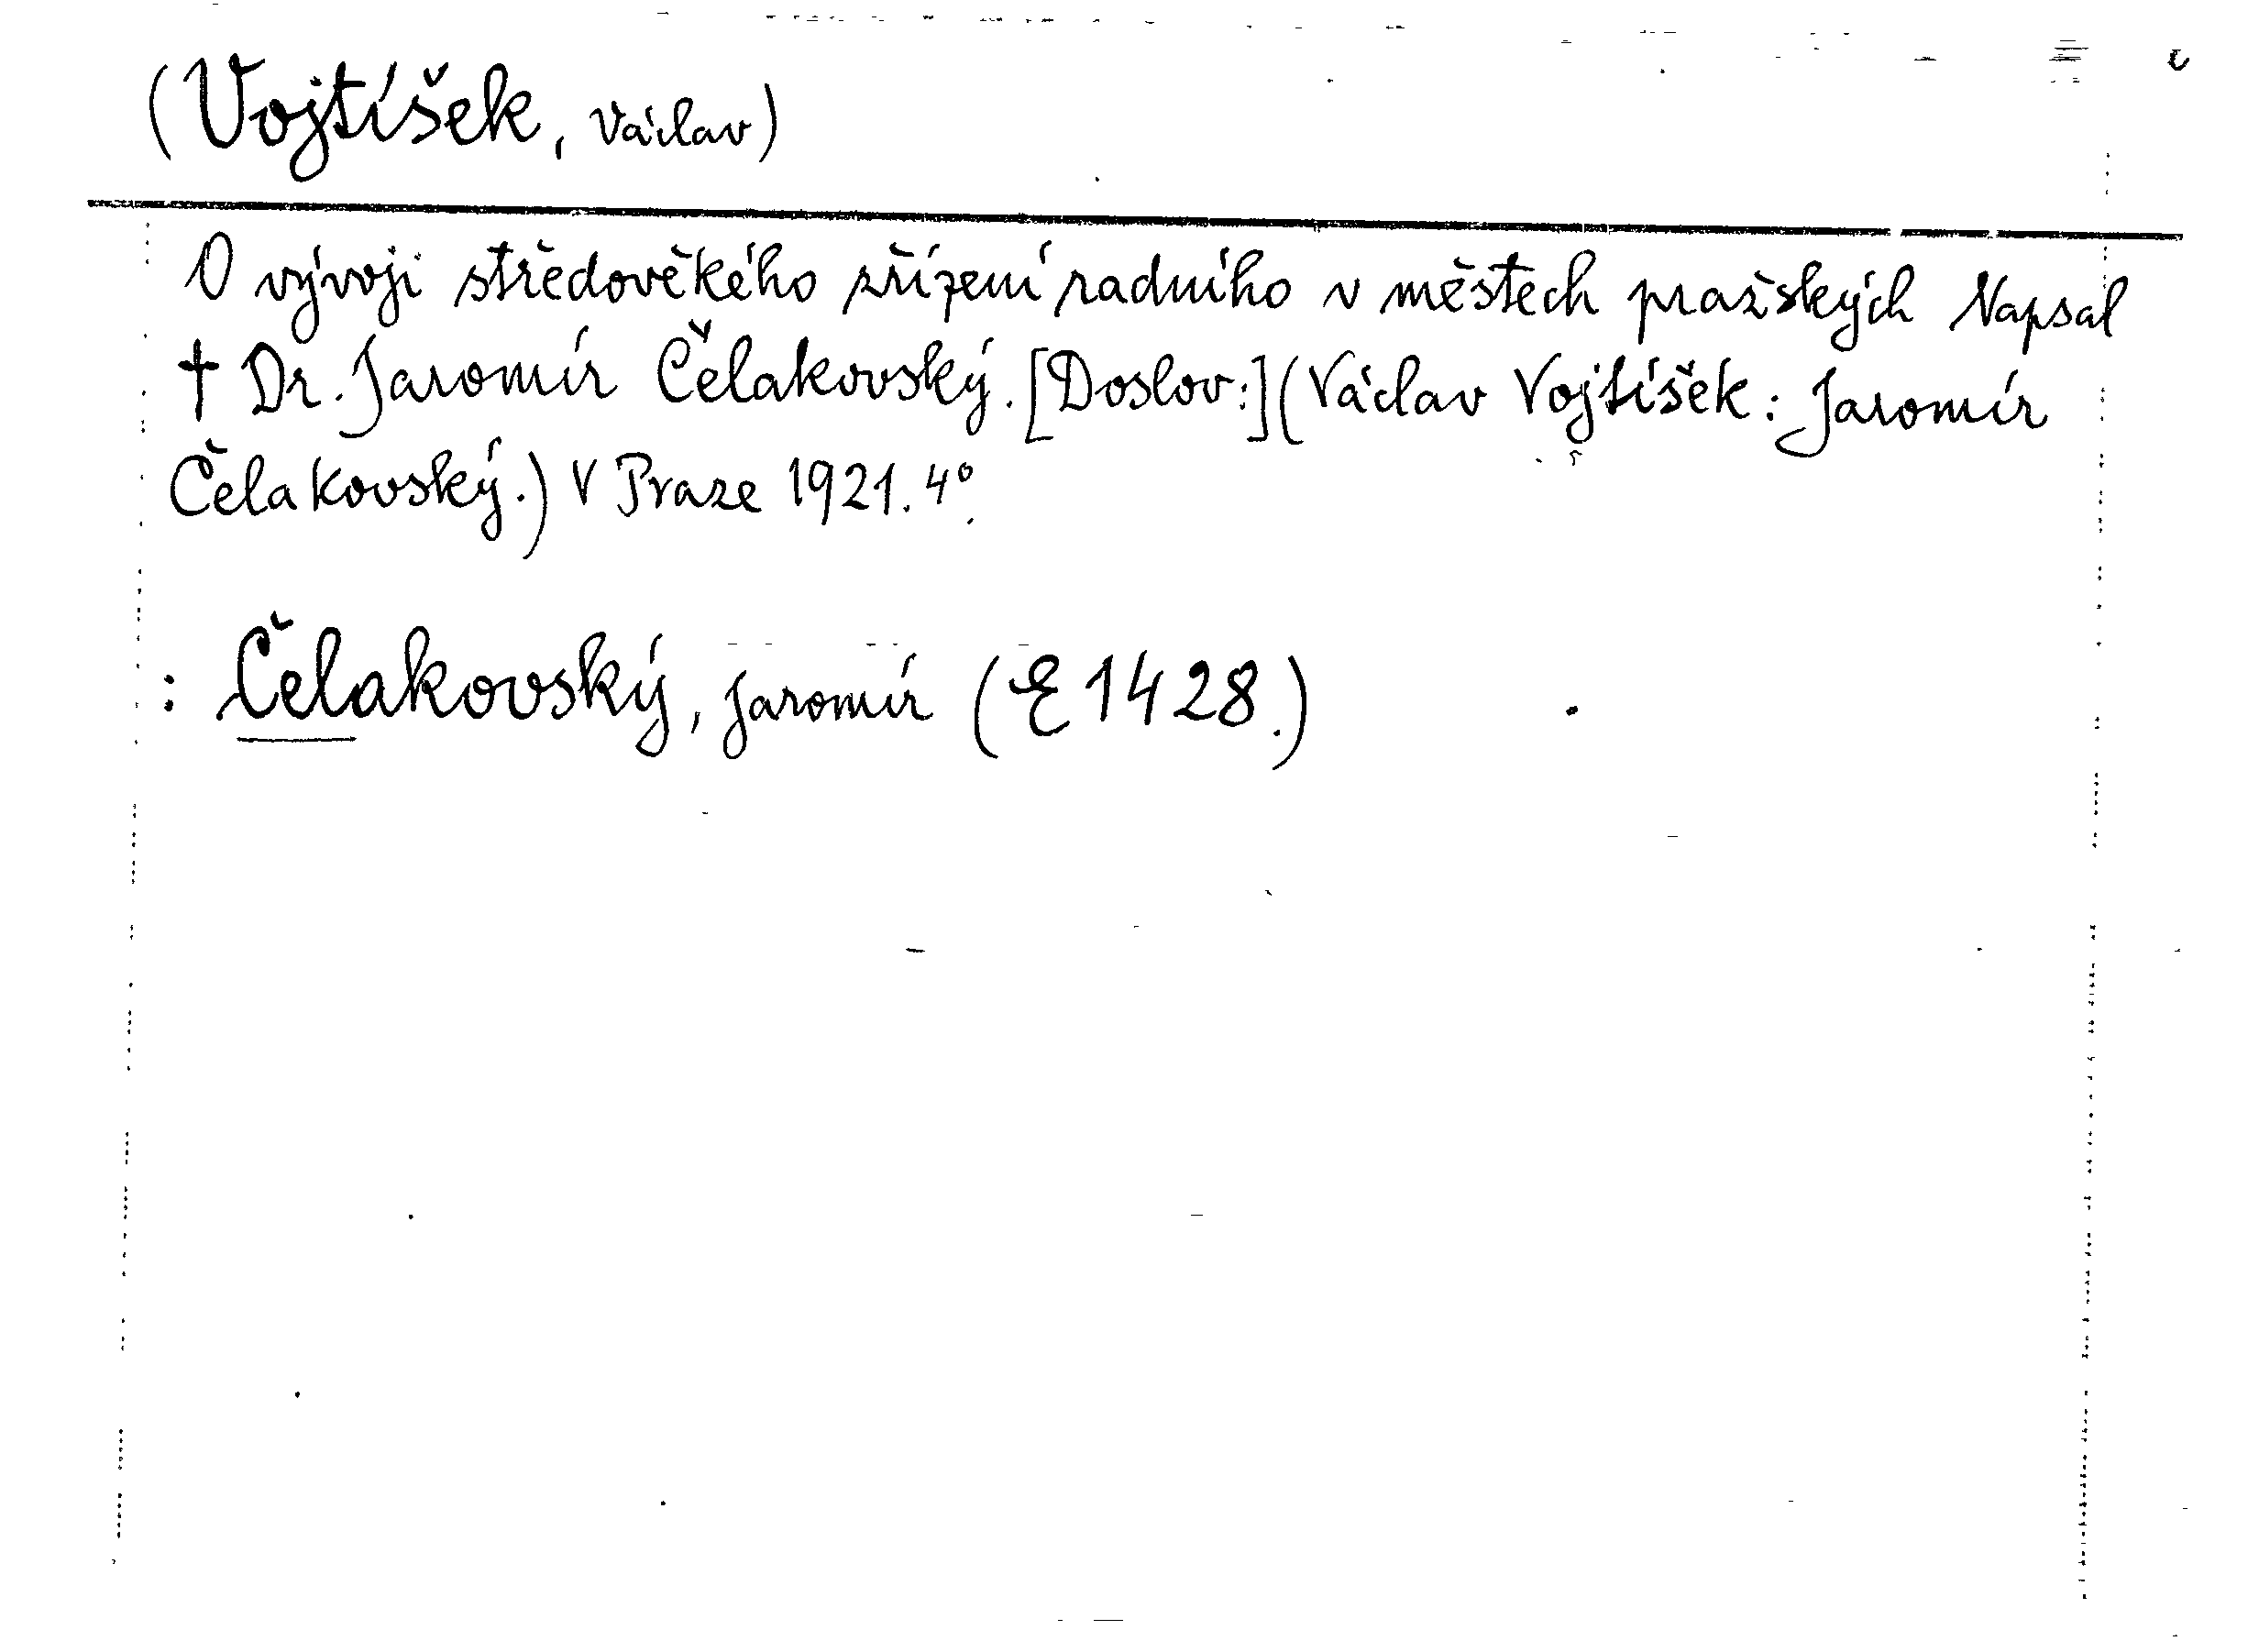 (Vojtíšek, Václav)
O vývoji středověkého zřízení radního v městech pražských Napsal
† Dr. Jaromír Čelakovský. [Doslov:] (Václav Vojtíšek: Jaromír
Čelakovský.) V Praze 1921. 4°.
: Čelakovský, Jaromír (E 1428.)